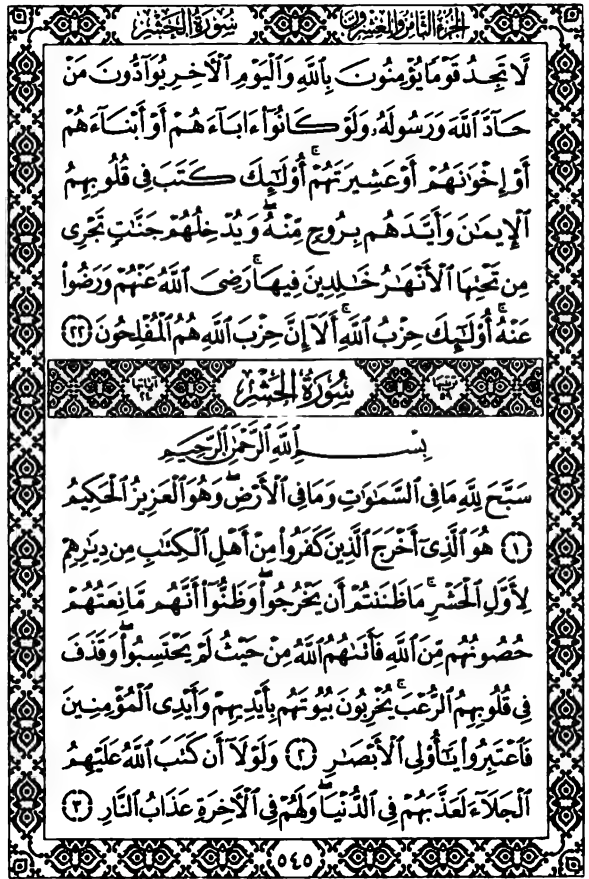 الجزء الثامن والعشرون سورة الحشر
لَّا تَجِدُ قَوْمًا يُؤْمِنُونَ بِٱللَّهِ وَٱلْيَوْمِ ٱلْـَٔاخِرِ يُوَآدُّونَ مَنْ
حَآدَّ ٱللَّهَ وَرَسُولَهُۥ وَلَوْ كَانُوٓا۟ ءَابَآءَهُمْ أَوْ أَبْنَآءَهُمْ
أَوْ إِخْوَٰنَهُمْ أَوْ عَشِيرَتَهُمْ ۚ أُو۟لَٰٓئِكَ كَتَبَ فِى قُلُوبِهِمُ
ٱلْإِيمَٰنَ وَأَيَّدَهُم بِرُوحٍ مِّنْهُ ۖ وَيُدْخِلُهُمْ جَنَّٰتٍ تَجْرِى
مِن تَحْتِهَا ٱلْأَنْهَٰرُ خَٰلِدِينَ فِيهَا ۚ رَضِىَ ٱللَّهُ عَنْهُمْ وَرَضُوا۟
عَنْهُ ۚ أُو۟لَٰٓئِكَ حِزْبُ ٱللَّهِ ۚ أَلَآ إِنَّ حِزْبَ ٱللَّهِ هُمُ ٱلْمُفْلِحُونَ ٢٢
ترتيبها ٥٩ سُورَةُ الحَشْرِ آياتها ٢٤
بِسْمِ ٱللَّهِ ٱلرَّحْمَٰنِ ٱلرَّحِيمِ
سَبَّحَ لِلَّهِ مَا فِى ٱلسَّمَٰوَٰتِ وَمَا فِى ٱلْأَرْضِ ۖ وَهُوَ ٱلْعَزِيزُ ٱلْحَكِيمُ
١ هُوَ ٱلَّذِىٓ أَخْرَجَ ٱلَّذِينَ كَفَرُوا۟ مِنْ أَهْلِ ٱلْكِتَٰبِ مِن دِيَٰرِهِمْ
لِأَوَّلِ ٱلْحَشْرِ ۚ مَا ظَنَنتُمْ أَن يَخْرُجُوا۟ ۖ وَظَنُّوٓا۟ أَنَّهُم مَّانِعَتُهُمْ
حُصُونُهُم مِّنَ ٱللَّهِ فَأَتَىٰهُمُ ٱللَّهُ مِنْ حَيْثُ لَمْ يَحْتَسِبُوا۟ ۖ وَقَذَفَ
فِى قُلُوبِهِمُ ٱلرُّعْبَ ۚ يُخْرِبُونَ بُيُوتَهُم بِأَيْدِيهِمْ وَأَيْدِى ٱلْمُؤْمِنِينَ
فَٱعْتَبِرُوا۟ يَٰٓأُو۟لِى ٱلْأَبْصَٰرِ ٢ وَلَوْلَآ أَن كَتَبَ ٱللَّهُ عَلَيْهِمُ
ٱلْجَلَآءَ لَعَذَّبَهُمْ فِى ٱلدُّنْيَا ۖ وَلَهُمْ فِى ٱلْـَٔاخِرَةِ عَذَابُ ٱلنَّارِ ٣
٥٤٥